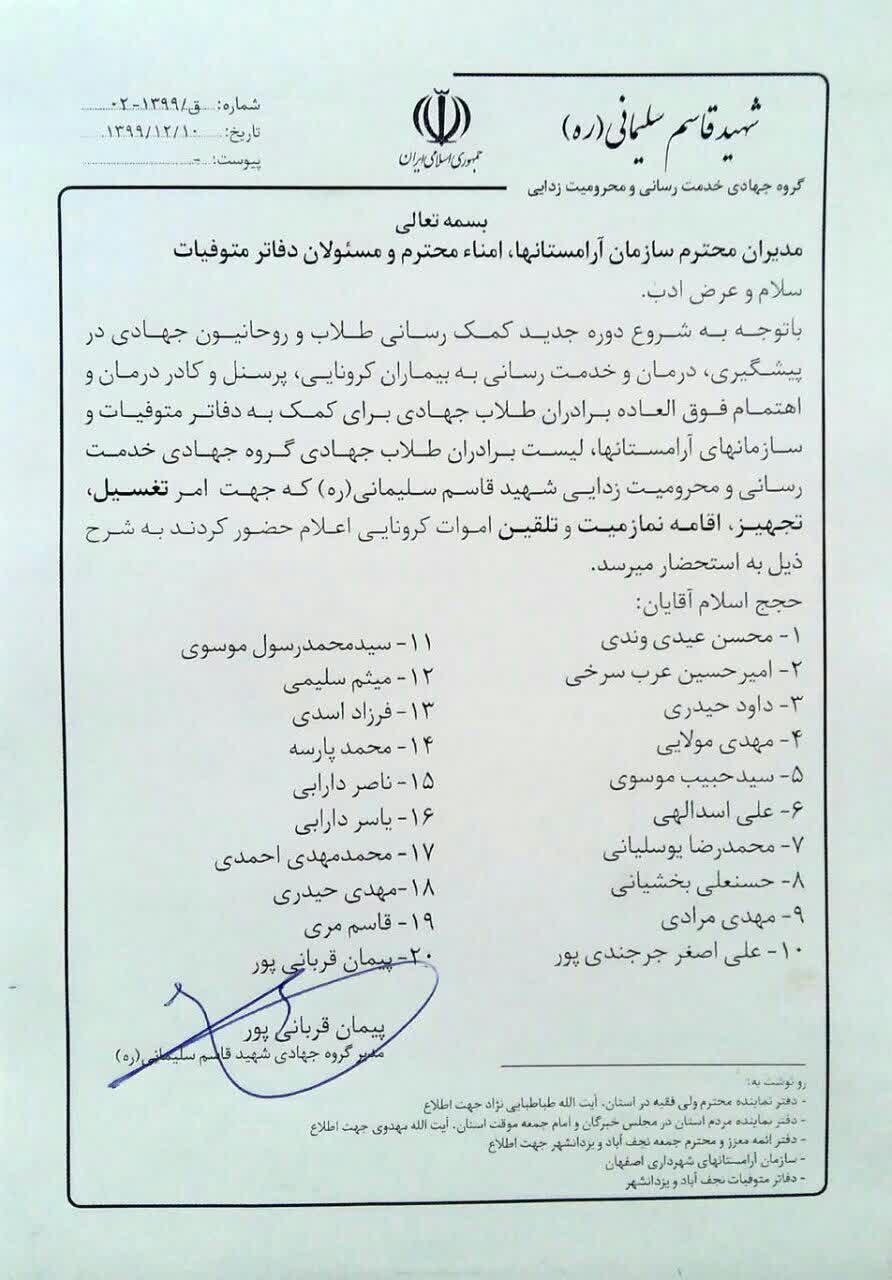 شهید قاسم سلیمانی (ره)
گروه جهادی خدمت رسانی و محرومیت زدایی
جمهوری اسلامی ایران
شماره: ق/۱۳۹۹-۰۲
تاریخ: ۱۳۹۹/۱۲/۱۰
پیوست: -
بسمه تعالی
مدیران محترم سازمان آرامستانها، امناء محترم و مسئولان دفاتر متوفیات
سلام و عرض ادب.
باتوجه به شروع دوره جدید کمک رسانی طلاب و روحانیون جهادی در
پیشگیری، درمان و خدمت رسانی به بیماران کرونایی، پرسنل و کادر درمان و
اهتمام فوق العاده برادران طلاب جهادی برای کمک به دفاتر متوفیات و
سازمانهای آرامستانها، لیست برادران طلاب جهادی گروه جهادی خدمت
رسانی و محرومیت زدایی شهید قاسم سلیمانی(ره) که جهت امر تغسیل،
تجهیز، اقامه نمازمیت و تلقین اموات کرونایی اعلام حضور کردند به شرح
ذیل به استحضار میرسد.
حجج اسلام آقایان:
۱- محسن عیدی وندی
۲- امیرحسین عرب سرخی
۳- داود حیدری
۴- مهدی مولایی
۵- سیدحبیب موسوی
۶- علی اسدالهی
۷- محمدرضا یوسلیانی
۸- حسنعلی بخشیانی
۹- مهدی مرادی
۱۰- علی اصغر جرجندی پور
۱۱- سیدمحمدرسول موسوی
۱۲- میثم سلیمی
۱۳- فرزاد اسدی
۱۴- محمد پارسه
۱۵- ناصر دارابی
۱۶- یاسر دارابی
۱۷- محمدمهدی احمدی
۱۸-مهدی حیدری
۱۹- قاسم مری
۲۰- پیمان قربانی پور
پیمان قربانی پور
مدیر گروه جهادی شهید قاسم سلیمانی(ره)
رو نوشت به:
- دفتر نماینده محترم ولی فقیه در استان. آیت الله طباطبایی نژاد جهت اطلاع
- دفتر نماینده مردم استان در مجلس خبرگان و امام جمعه موقت استان. آیت الله مهدوی جهت اطلاع
- دفتر ائمه معزز و محترم جمعه نجف آباد و یزدانشهر جهت اطلاع
- سازمان آرامستانهای شهرداری اصفهان
- دفاتر متوفیات نجف آباد و یزدانشهر